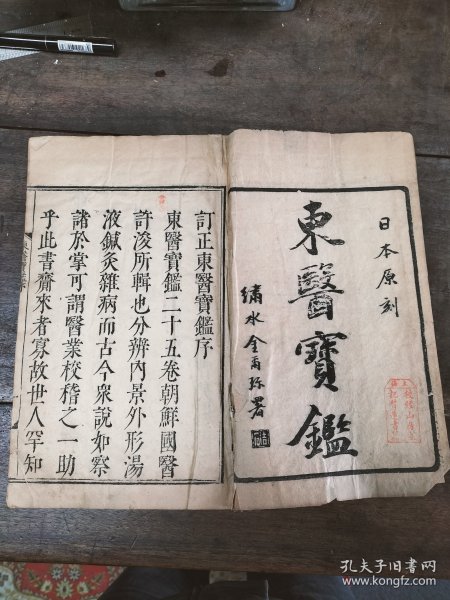 日本原刻
東醫寶鑑
繡水金爾珍署
訂正東醫寶鑑序
東醫寶鑑二十五卷朝鮮國醫
許浚所輯也分辨內景外形湯
液鍼灸雜病而古今衆說如察
諸於掌可謂醫業校稽之一助
乎此書齎來者寡故世人罕知
孔夫子旧书网
www.kongfz.com